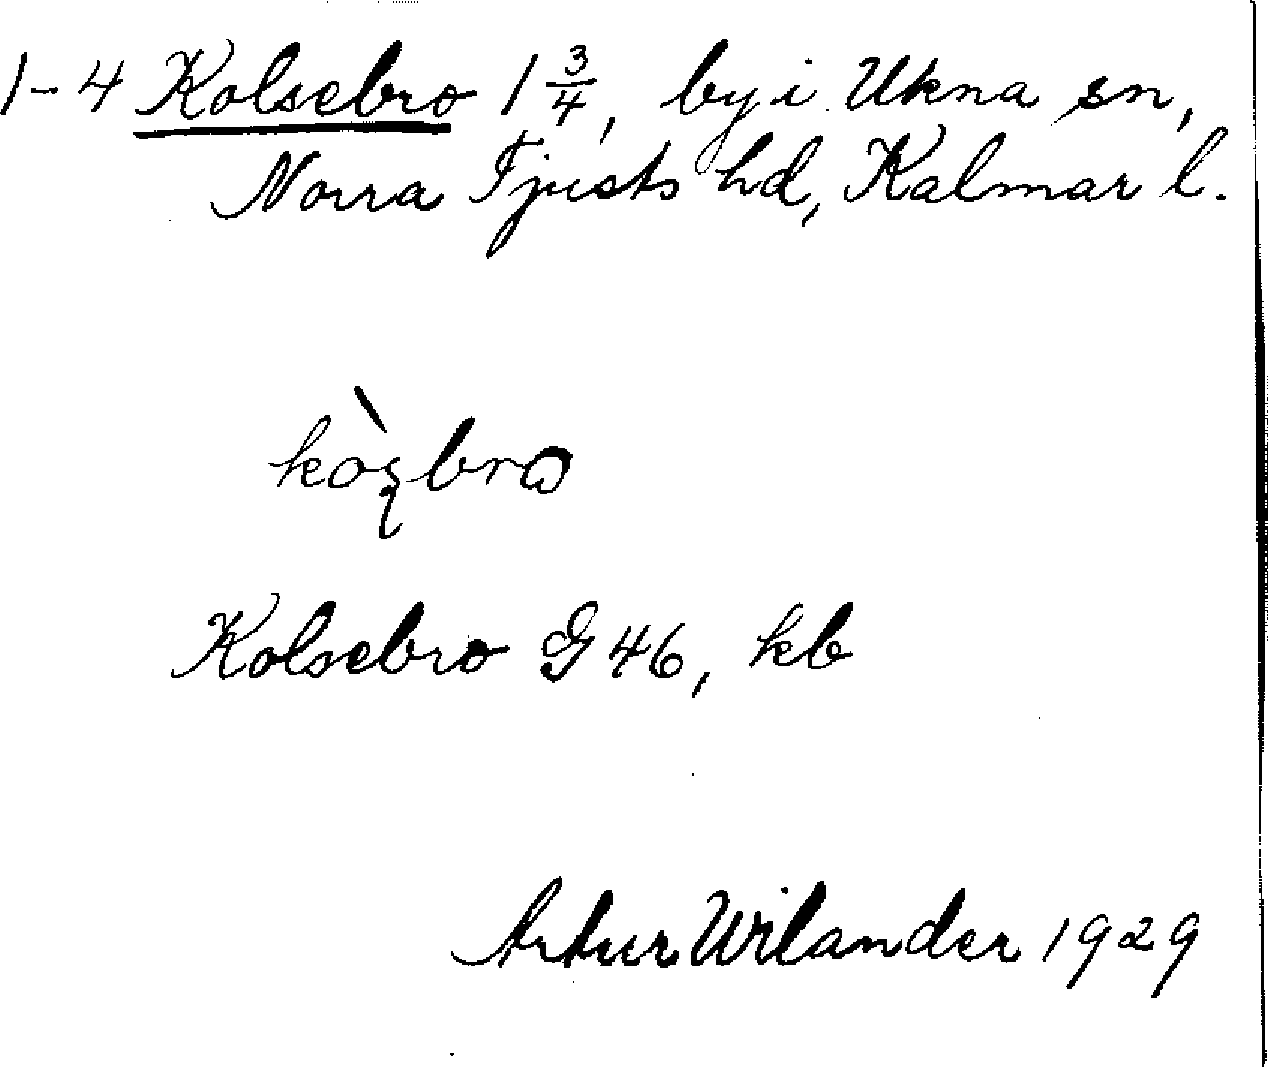 1-4 Kolsebro 1 3/4, by i Ukna sn,
Norra Tjusts hd, Kalmar l.
kòʂbro
Kolsebro G 46, kb
Artur Wilander 1929